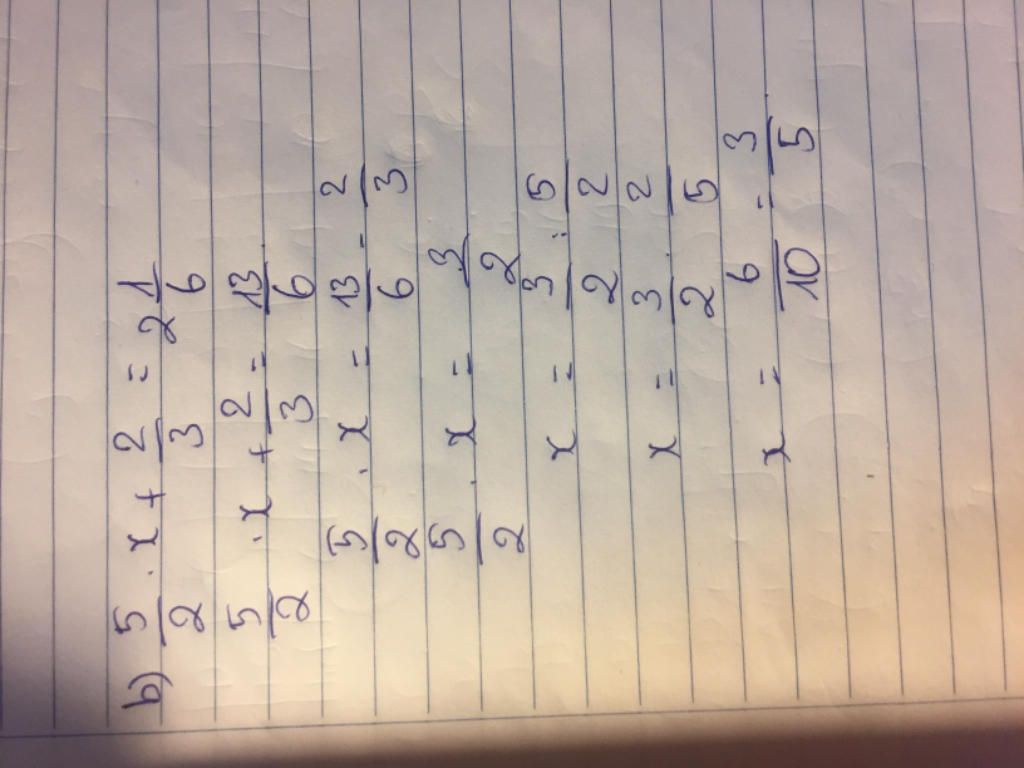 b) 5/2 . x + 2/3 = 2 1/6
5/2 . x + 2/3 = 13/6
5/2 . x = 13/6 - 2/3
5/2 . x = 3/2
x = 3/2 : 5/2
x = 3/2 . 2/5
x = 6/10 = 3/5